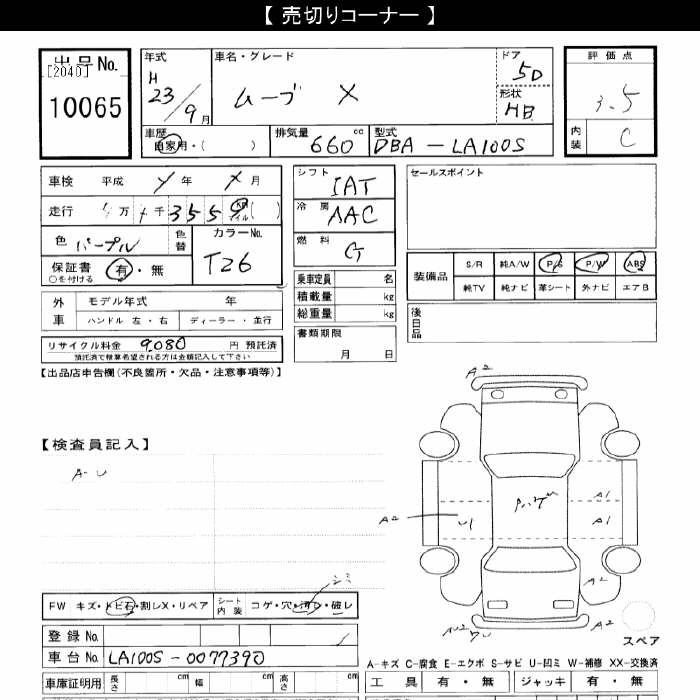 【 売切りコーナー 】
出品No.
[2040]
10065
年式
H
23/9月
車名・グレード
ムーブ X
ドア
5D
形状
HB
評価点
3.5
内装
C
車歴
自家用・( )
排気量
660cc
型式
DBA - LA100S
車検 平成 年 月
走行 万 千 355 km マイル ( )
色 パープル
色替
カラーNo.
T26
保証書
○を付ける
有・無
外車
モデル年式 年
ハンドル 左・右
ディーラー・並行
リサイクル料金 9,080 円 預託済
預託済で検算希望される方は金額記入して下さい
シフト
IAT
冷房
AAC
燃料
G
乗車定員 名
積載量 kg
総重量 kg
書類期限
月 日
セールスポイント
装備品
S/R 純A/W P/S P/W ABS
純TV 純ナビ 革シート 外ナビ エアB
後日品
【出品店申告欄(不良箇所・欠品・注意事項等)】
【検査員記入】
A・U
A2
A2
U1
A1
A1
A2
A2
スペア
FW キズ・トビ石・割レX・リペア
シート内装
コゲ・穴・汚レ・破レ
シミ
登録No.
車台No. LA100S-0077390
車庫証明用
長さ cm
幅 cm
高さ cm
A-キズ C-腐食 E-エクボ S-サビ U-凹ミ W-補修 XX-交換済
工具 有・無
ジャッキ 有・無